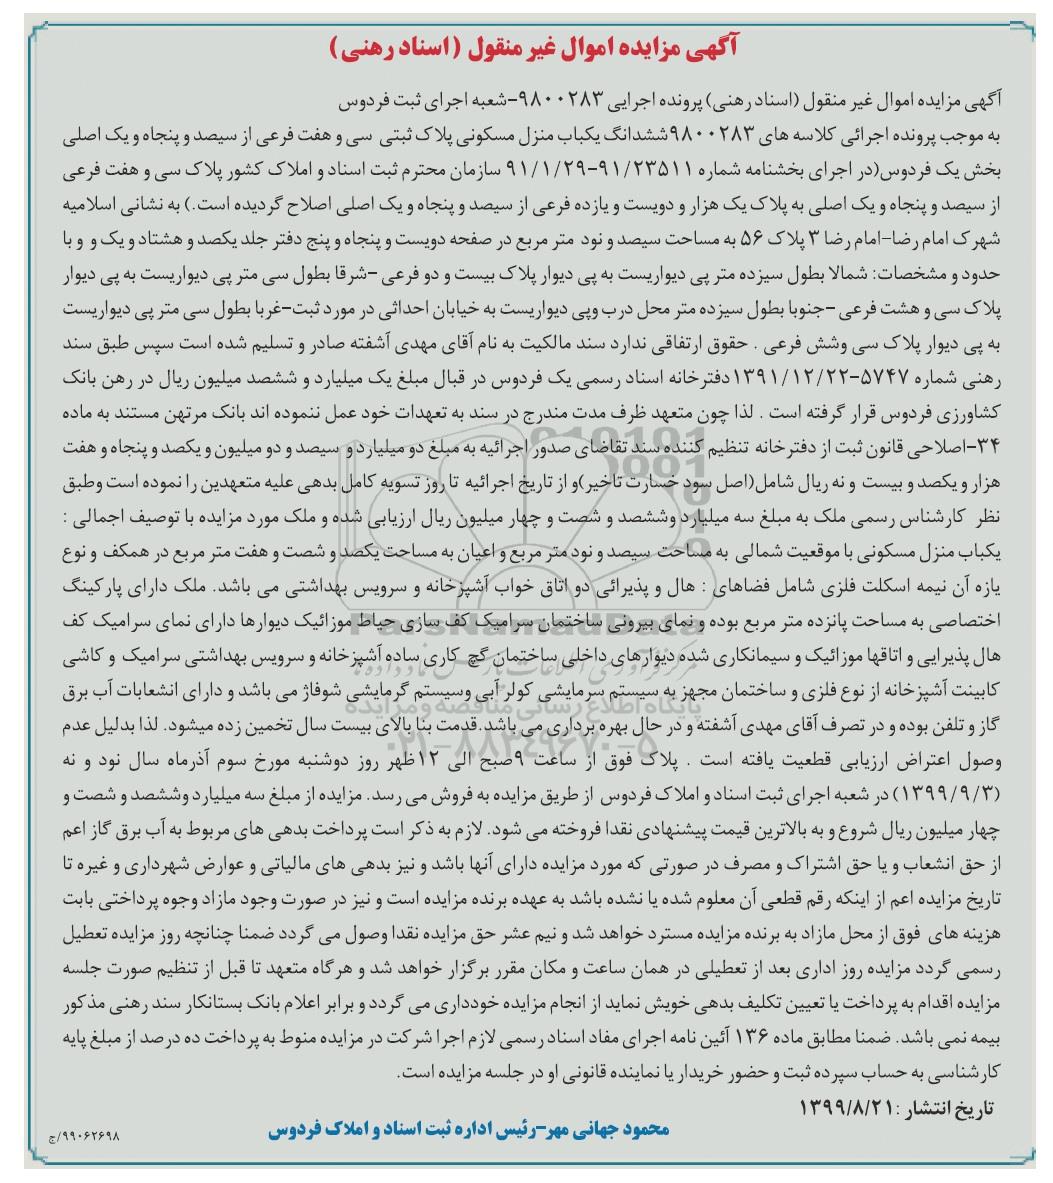 آگهی مزایده اموال غیر منقول (اسناد رهنی)
آگهی مزایده اموال غیر منقول (اسناد رهنی) پرونده اجرایی ۹۸۰۰۲۸۳-شعبه اجرای ثبت فردوس
به موجب پرونده اجرائی کلاسه های ۹۸۰۰۲۸۳ششدانگ یکباب منزل مسکونی پلاک ثبتی سی و هفت فرعی از سیصد و پنجاه و یک اصلی
بخش یک فردوس(در اجرای بخشنامه شماره ۹۱/۲۳۵۱۱-۹۱/۱/۲۹ سازمان محترم ثبت اسناد و املاک کشور پلاک سی و هفت فرعی
از سیصد و پنجاه و یک اصلی به پلاک یک هزار و دویست و یازده فرعی از سیصد و پنجاه و یک اصلی اصلاح گردیده است.) به نشانی اسلامیه
شهرک امام رضا-امام رضا ۳ پلاک ۵۶ به مساحت سیصد و نود متر مربع در صفحه دویست و پنجاه و پنج دفتر جلد یکصد و هشتاد و یک و و با
حدود و مشخصات: شمالا بطول سیزده متر پی دیواریست به پی دیوار پلاک بیست و دو فرعی -شرقا بطول سی متر پی دیواریست به پی دیوار
پلاک سی و هشت فرعی -جنوبا بطول سیزده متر محل درب وپی دیواریست به خیابان احداثی در مورد ثبت-غربا بطول سی متر پی دیواریست
به پی دیوار پلاک سی وشش فرعی . حقوق ارتفاقی ندارد سند مالکیت به نام آقای مهدی آشفته صادر و تسلیم شده است سپس طبق سند
رهنی شماره ۵۷۴۷-۱۳۹۱/۱۲/۲۲دفترخانه اسناد رسمی یک فردوس در قبال مبلغ یک میلیارد و ششصد میلیون ریال در رهن بانک
کشاورزی فردوس قرار گرفته است . لذا چون متعهد ظرف مدت مندرج در سند به تعهدات خود عمل ننموده اند بانک مرتهن مستند به ماده
۳۴-اصلاحی قانون ثبت از دفترخانه تنظیم کننده سند تقاضای صدور اجرائیه به مبلغ دو میلیارد و سیصد و دو میلیون و یکصد و پنجاه و هفت
هزار و یکصد و بیست و نه ریال شامل(اصل سود خسارت تاخیر)و از تاریخ اجرائیه تا روز تسویه کامل بدهی علیه متعهدین را نموده است وطبق
نظر کارشناس رسمی ملک به مبلغ سه میلیارد وششصد و شصت و چهار میلیون ریال ارزیابی شده و ملک مورد مزایده با توصیف اجمالی :
یکباب منزل مسکونی با موقعیت شمالی به مساحت سیصد و نود متر مربع و اعیان به مساحت یکصد و شصت و هفت متر مربع در همکف و نوع
یازه آن نیمه اسکلت فلزی شامل فضاهای : هال و پذیرائی دو اتاق خواب آشپزخانه و سرویس بهداشتی می باشد. ملک دارای پارکینگ
اختصاصی به مساحت پانزده متر مربع بوده و نمای بیرونی ساختمان سرامیک کف سازی حیاط موزائیک دیوارها دارای نمای سرامیک کف
هال پذیرایی و اتاقها موزائیک و سیمانکاری شده دیوارهای داخلی ساختمان گچ کاری ساده آشپزخانه و سرویس بهداشتی سرامیک و کاشی
کابینت آشپزخانه از نوع فلزی و ساختمان مجهز به سیستم سرمایشی کولر آبی وسیستم گرمایشی شوفاژ می باشد و دارای انشعابات آب برق
گاز و تلفن بوده و در تصرف آقای مهدی آشفته و در حال بهره برداری می باشد.قدمت بنا بالای بیست سال تخمین زده میشود. لذا بدلیل عدم
وصول اعتراض ارزیابی قطعیت یافته است . پلاک فوق از ساعت ۹صبح الی ۱۲ظهر روز دوشنبه مورخ سوم آذرماه سال نود و نه
(۱۳۹۹/۹/۳) در شعبه اجرای ثبت اسناد و املاک فردوس از طریق مزایده به فروش می رسد. مزایده از مبلغ سه میلیارد وششصد و شصت و
چهار میلیون ریال شروع و به بالاترین قیمت پیشنهادی نقدا فروخته می شود. لازم به ذکر است پرداخت بدهی های مربوط به آب برق گاز اعم
از حق انشعاب و یا حق اشتراک و مصرف در صورتی که مورد مزایده دارای آنها باشد و نیز بدهی های مالیاتی و عوارض شهرداری و غیره تا
تاریخ مزایده اعم از اینکه رقم قطعی آن معلوم شده یا نشده باشد به عهده برنده مزایده است و نیز در صورت وجود مازاد وجوه پرداختی بابت
هزینه های فوق از محل مازاد به برنده مزایده مسترد خواهد شد و نیم عشر حق مزایده نقدا وصول می گردد ضمنا چنانچه روز مزایده تعطیل
رسمی گردد مزایده روز اداری بعد از تعطیلی در همان ساعت و مکان مقرر برگزار خواهد شد و هرگاه متعهد تا قبل از تنظیم صورت جلسه
مزایده اقدام به پرداخت یا تعیین تکلیف بدهی خویش نماید از انجام مزایده خودداری می گردد و برابر اعلام بانک بستانکار سند رهنی مذکور
بیمه نمی باشد. ضمنا مطابق ماده ۱۳۶ آئین نامه اجرای مفاد اسناد رسمی لازم اجرا شرکت در مزایده منوط به پرداخت ده درصد از مبلغ پایه
کارشناسی به حساب سپرده ثبت و حضور خریدار یا نماینده قانونی او در جلسه مزایده است.
تاریخ انتشار :۱۳۹۹/۸/۲۱
محمود جهانی مهر-رئیس اداره ثبت اسناد و املاک فردوس
۹۹۰۶۲۶۹۸/ج
ParsNamadData
پایگاه اطلاع رسانی مناقصه و مزایده
۰۲۱-۸۸۳۴۹۶۷۰-۵